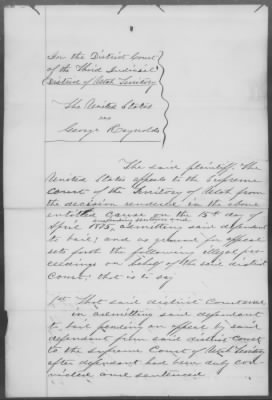 In the District Court
of the Third Judicial
District of Utah Territory
The United States
vs
George Reynolds
The said plaintiff, The
United States appeals to the Supreme
Court of the Territory of Utah from
the decision rendered in the above
entitled cause on the 15th day of
April 1875, admitting said defendant
to bail; and as ground for appeal
sets forth the following illegal pro-
ceedings on behalf of the said district
Court; that is to say
1st That said district Court erred
in admitting said defendant
to bail pending an appeal by said
defendant from said district Court
to the Supreme Court of Utah Territory
after defendant had been duly con-
victed and sentenced